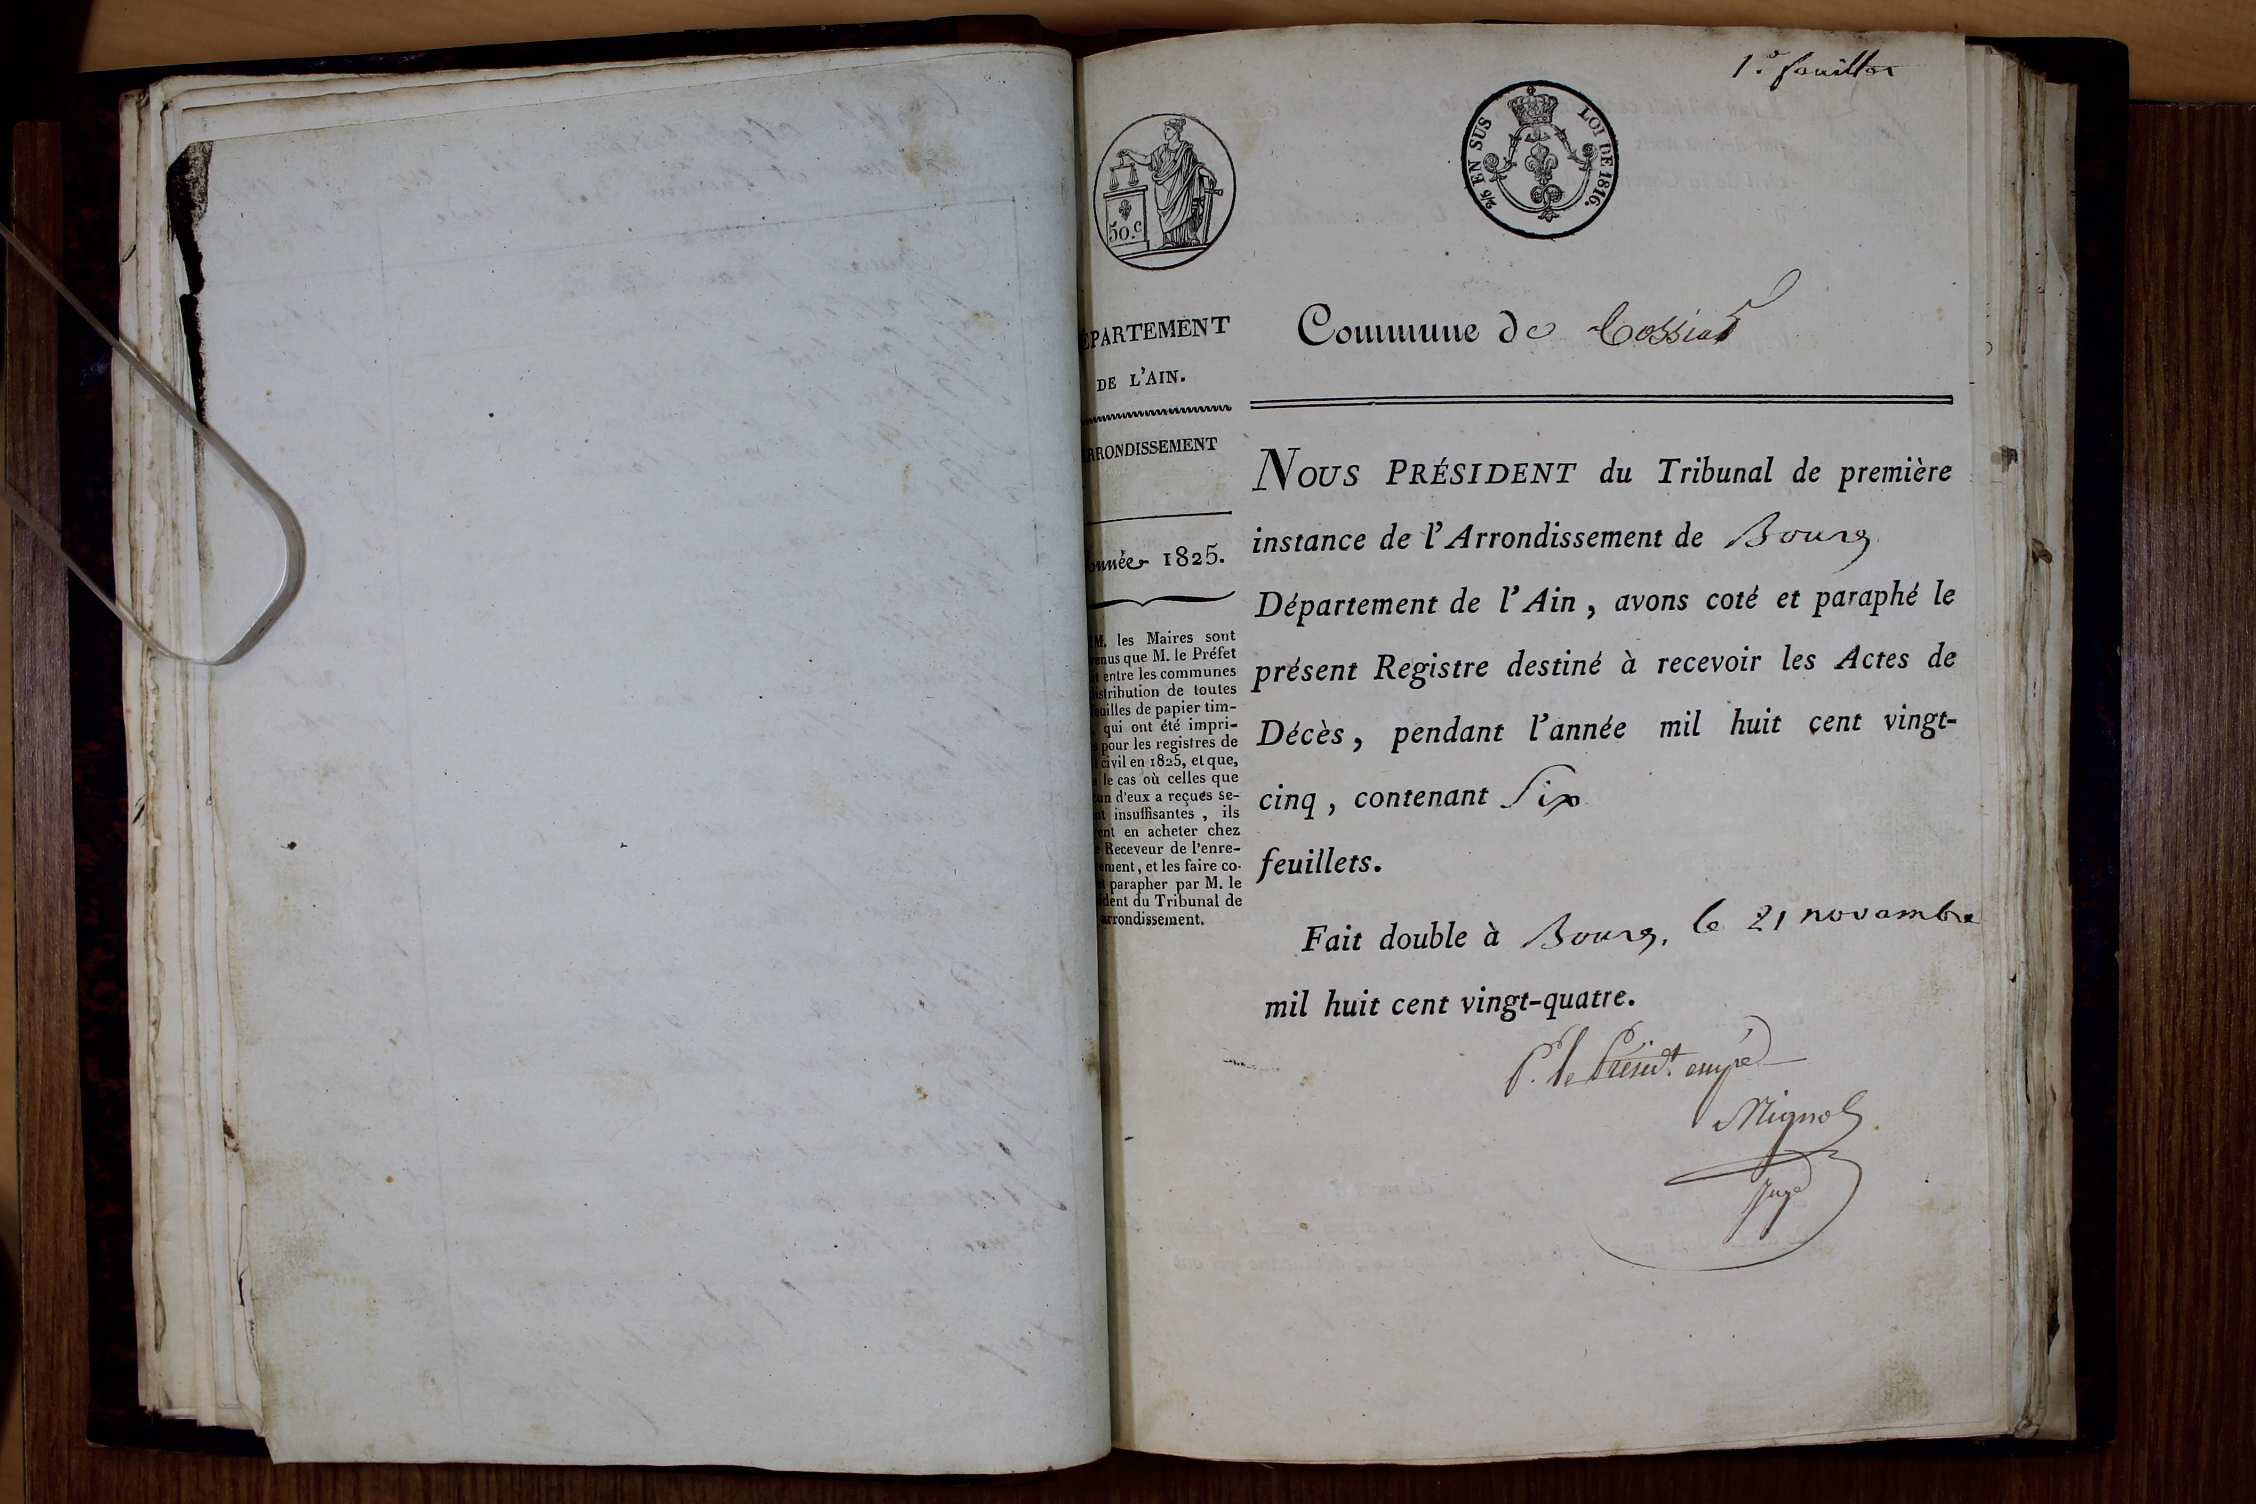 1.er feuillet
2/5 EN SUS
LOI DE 1816.
50.c
Commune de Tossiat
DÉPARTEMENT
DE L'AIN.
ARRONDISSEMENT
Année 1825.
NOUS PRÉSIDENT du Tribunal de première
instance de l'Arrondissement de Bourg
Département de l'Ain, avons coté et paraphé le
présent Registre destiné à recevoir les Actes de
Décès, pendant l'année mil huit cent vingt-
cinq, contenant Six
feuillets.
Fait double à Bourg, le 21 novembre
mil huit cent vingt-quatre.
P. le Présidt. empé
Mignot
Juge
M. les Maires sont
que M. le Préfet
entre les communes
distribution de toutes
feuilles de papier tim-
qui ont été impri-
pour les registres de
civil en 1825, et que,
le cas où celles que
d'eux a reçues se-
insuffisantes, ils
en acheter chez
Receveur de l'enre-
ment, et les faire co-
parapher par M. le
dent du Tribunal de
arrondissement.